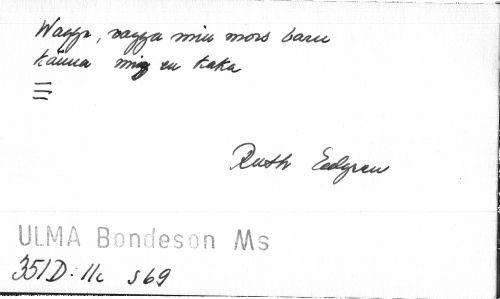 Wagga, vagga min mors barn
känna mig en kaka
Ruth Edgren
ULMA Bondeson Ms
351D:11c s69